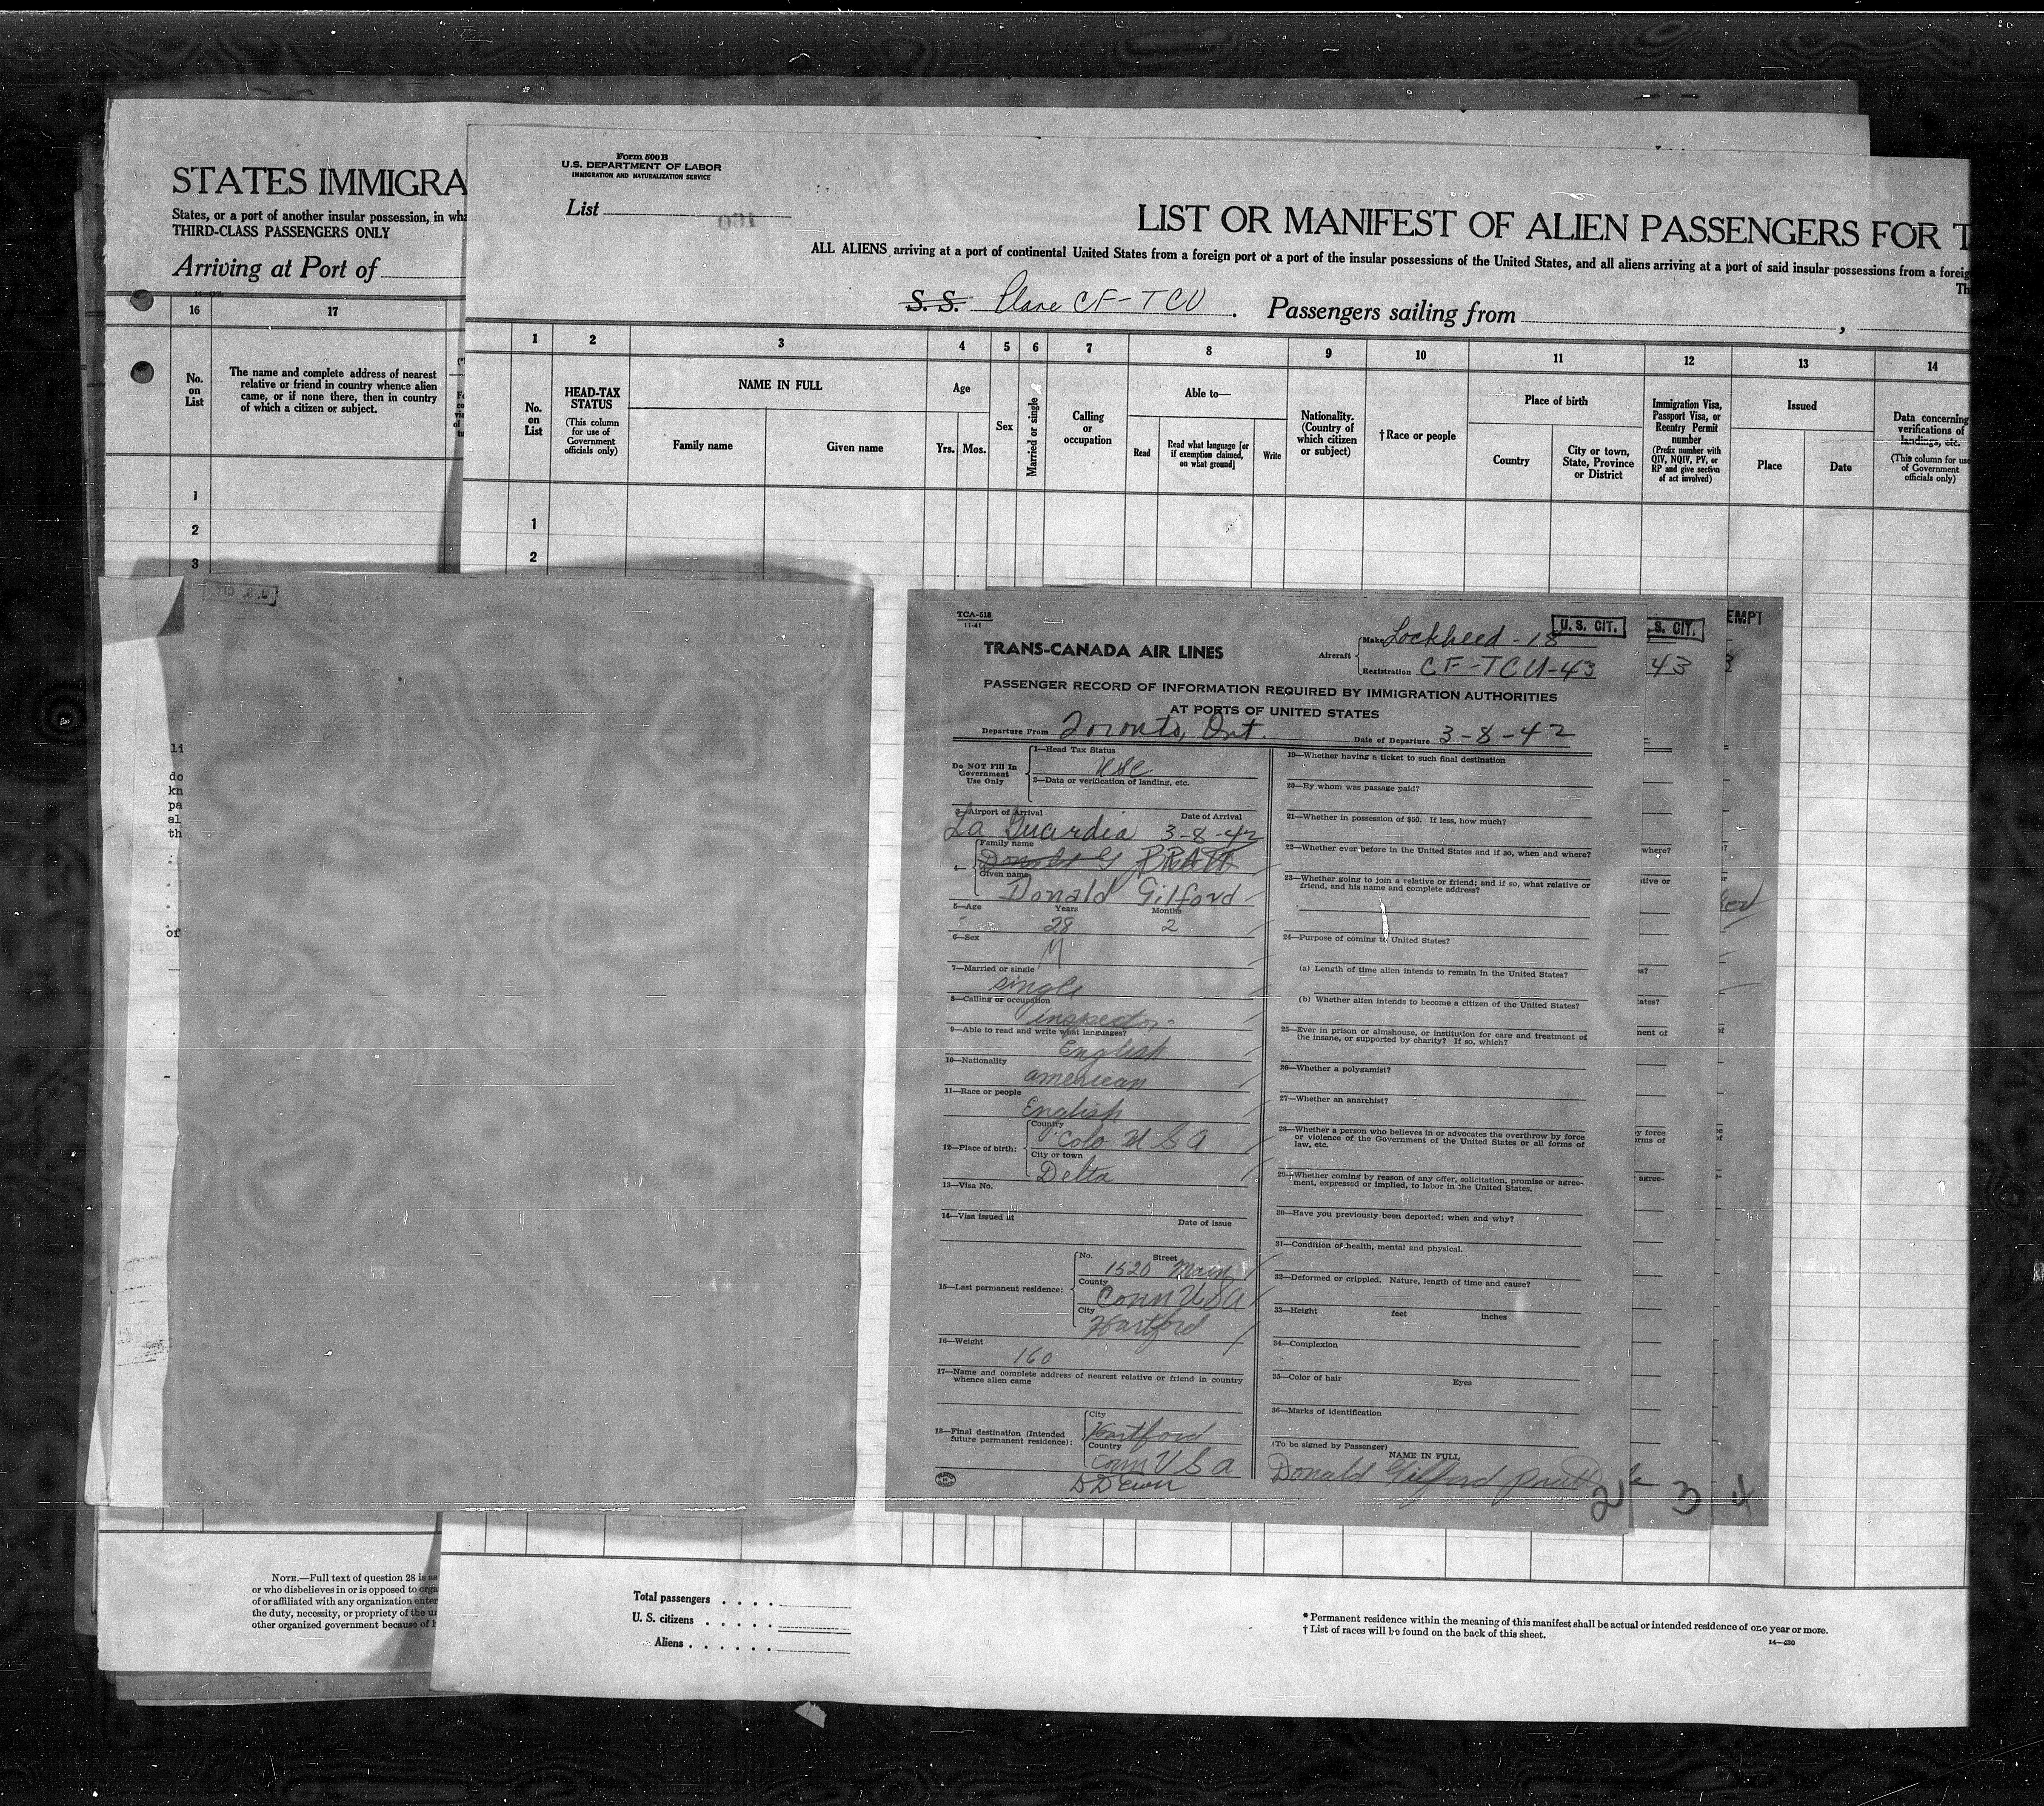 STATES IMMIGRA
States, or a port of another insular possession, in wha
THIRD-CLASS PASSENGERS ONLY
Arriving at Port of
16
17
No.
on
List
The name and complete address of nearest
relative or friend in country whence alien
came, or if none there, then in country
of which a citizen or subject.
1
2
3
li
do
kn
pa
al
th
of
NOTE.—Full text of question 28 is as
or who disbelieves in or is opposed to orga
of or affiliated with any organization enter
the duty, necessity, or propriety of the un
other organized government because of h
Form 500 B
U.S. DEPARTMENT OF LABOR
IMMIGRATION AND NATURALIZATION SERVICE
List
160
LIST OR MANIFEST OF ALIEN PASSENGERS FOR T
ALL ALIENS arriving at a port of continental United States from a foreign port or a port of the insular possessions of the United States, and all aliens arriving at a port of said insular possessions from a foreig
Th
S. S. Plane CF-TCU. Passengers sailing from ,
1 2 3 4 5 6 7 8 9 10 11 12 13 14
No.
on
List
HEAD-TAX
STATUS
(This column
for use of
Government
officials only)
NAME IN FULL
Family name
Given name
Age
Yrs.
Mos.
Sex
Married or single
Calling
or
occupation
Able to—
Read
Read what language [or
if exemption claimed,
on what ground]
Write
Nationality.
(Country of
which citizen
or subject)
†Race or people
Place of birth
Country
City or town,
State, Province
or District
Immigration Visa,
Passport Visa, or
Reentry Permit
number
(Prefix number with
QIV, NQIV, PV, or
RP and give section
of act involved)
Issued
Place
Date
Data concerning
verifications of
landings, etc.
(This column for use
of Government
officials only)
1
2
U. S. CIT.
TCA-518
11-41
TRANS-CANADA AIR LINES
Aircraft
Make Lockheed - 18
Registration CF-TCU-43
U. S. CIT.
S. CIT.
EMPT
43
PASSENGER RECORD OF INFORMATION REQUIRED BY IMMIGRATION AUTHORITIES
AT PORTS OF UNITED STATES
Departure From Toronto, Ont.
Date of Departure 3-8-42
Do NOT Fill In
Government
Use Only
1—Head Tax Status
USC
2—Data or verification of landing, etc.
3—Airport of Arrival
Date of Arrival
La Guardia 3-8-42
4—
Family name
Donald G PRATT
Given name
Donald Gilford
5—Age
Years
Months
28
2
6—Sex
M
7—Married or single
single
8—Calling or occupation
inspector
9—Able to read and write what languages?
English
10—Nationality
american
11—Race or people
English
12—Place of birth:
Country
Colo U S A
City or town
Delta
13—Visa No.
14—Visa issued at
Date of issue
15—Last permanent residence:
No.
Street
1520 Main
County
Conn USA
City
Hartford
16—Weight
160
17—Name and complete address of nearest relative or friend in country
whence alien came
18—Final destination (Intended
future permanent residence):
City
Hartford
Country
Conn U S A
19—Whether having a ticket to such final destination
20—By whom was passage paid?
21—Whether in possession of $50. If less, how much?
22—Whether ever before in the United States and if so, when and where?
23—Whether going to join a relative or friend; and if so, what relative or
friend, and his name and complete address?
24—Purpose of coming to United States?
(a) Length of time alien intends to remain in the United States?
(b) Whether alien intends to become a citizen of the United States?
25—Ever in prison or almshouse, or institution for care and treatment of
the insane, or supported by charity? If so, which?
26—Whether a polygamist?
27—Whether an anarchist?
28—Whether a person who believes in or advocates the overthrow by force
or violence of the Government of the United States or all forms of
law, etc.
29—Whether coming by reason of any offer, solicitation, promise or agree-
ment, expressed or implied, to labor in the United States.
30—Have you previously been deported; when and why?
31—Condition of health, mental and physical.
32—Deformed or crippled. Nature, length of time and cause?
33—Height feet inches
34—Complexion
35—Color of hair Eyes
36—Marks of identification
(To be signed by Passenger)
NAME IN FULL,
Donald Gilford Pratt
2
3
4
where?
tive or
es?
tates?
ment of
by force
rms of
agree-
Total passengers . . . .
U. S. citizens . . . . .
Aliens . . . . . .
* Permanent residence within the meaning of this manifest shall be actual or intended residence of one year or more.
† List of races will be found on the back of this sheet.
14—430